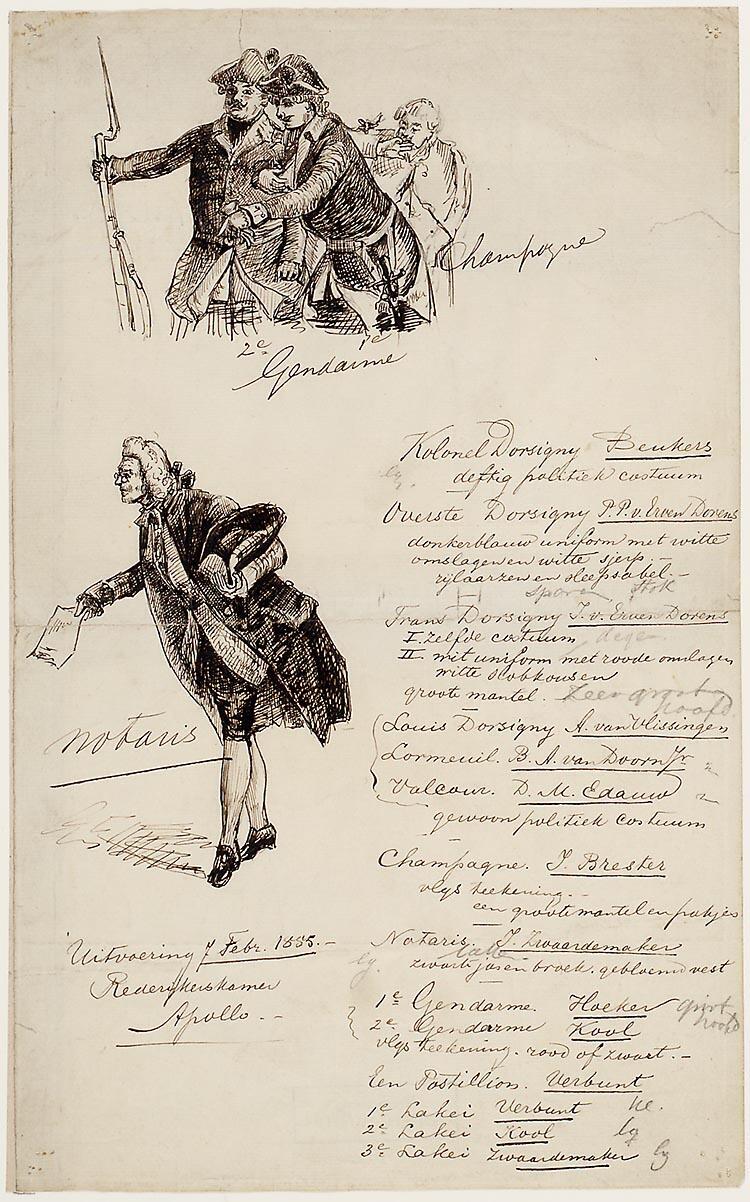 Champagne
2e 1e
Gendarme
Kolonel Dorsigny Beukers
deftig politiek costuum
Overste Dorsigny P. P. v. Erven Dorens
donkerblauw uniform met witte
omslagen en witte sjerp -
rijlaarzen en sleepsabel -
sporen stok
Frans Dorsigny J. v. Erven Dorens
I zelfde costuum degen
II. wit uniform met roode omslagen
witte slobkousen
groote mantel. Zeer groot
hoofd
Louis Dorsigny A. van Vlissingen
Lormeuil. B. A. van Doorn Jr
Valcour. D. M. Edauw
gewoon politiek costuum
Champagne. J. Brester
vlgs teekening. -
een groote mantel en pakjes
Notaris. J. Zwaardemaker
zwarte jas en broek. gebloemd vest
1e Gendarme. Hoeker groot
2e Gendarme Kool hoofd
vlgs teekening. rood of zwart. -
Een Postillion. Verbunt
1e Lakei Verbunt
2e Lakei Kool
3e Lakei Zwaardemaker
notaris
Uitvoering 7 Febr. 1885. -
Rederijkerskamer
Apollo. -